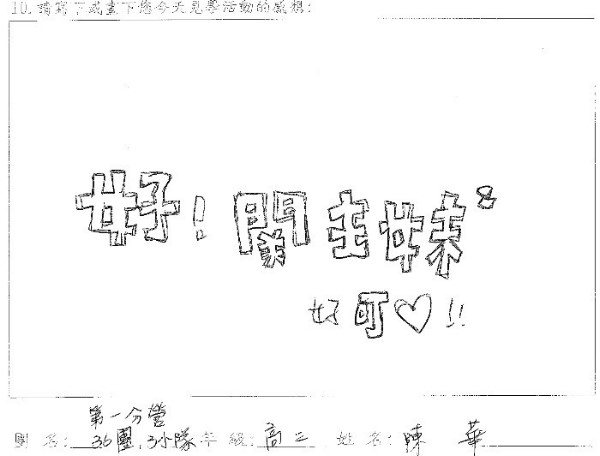 10.請寫下或畫下您今天見學活動的感想:
好! 關主妹8
好可♡!!
第一分營
團名: 36團,3小隊 年級: 高二 姓名: 陳 華